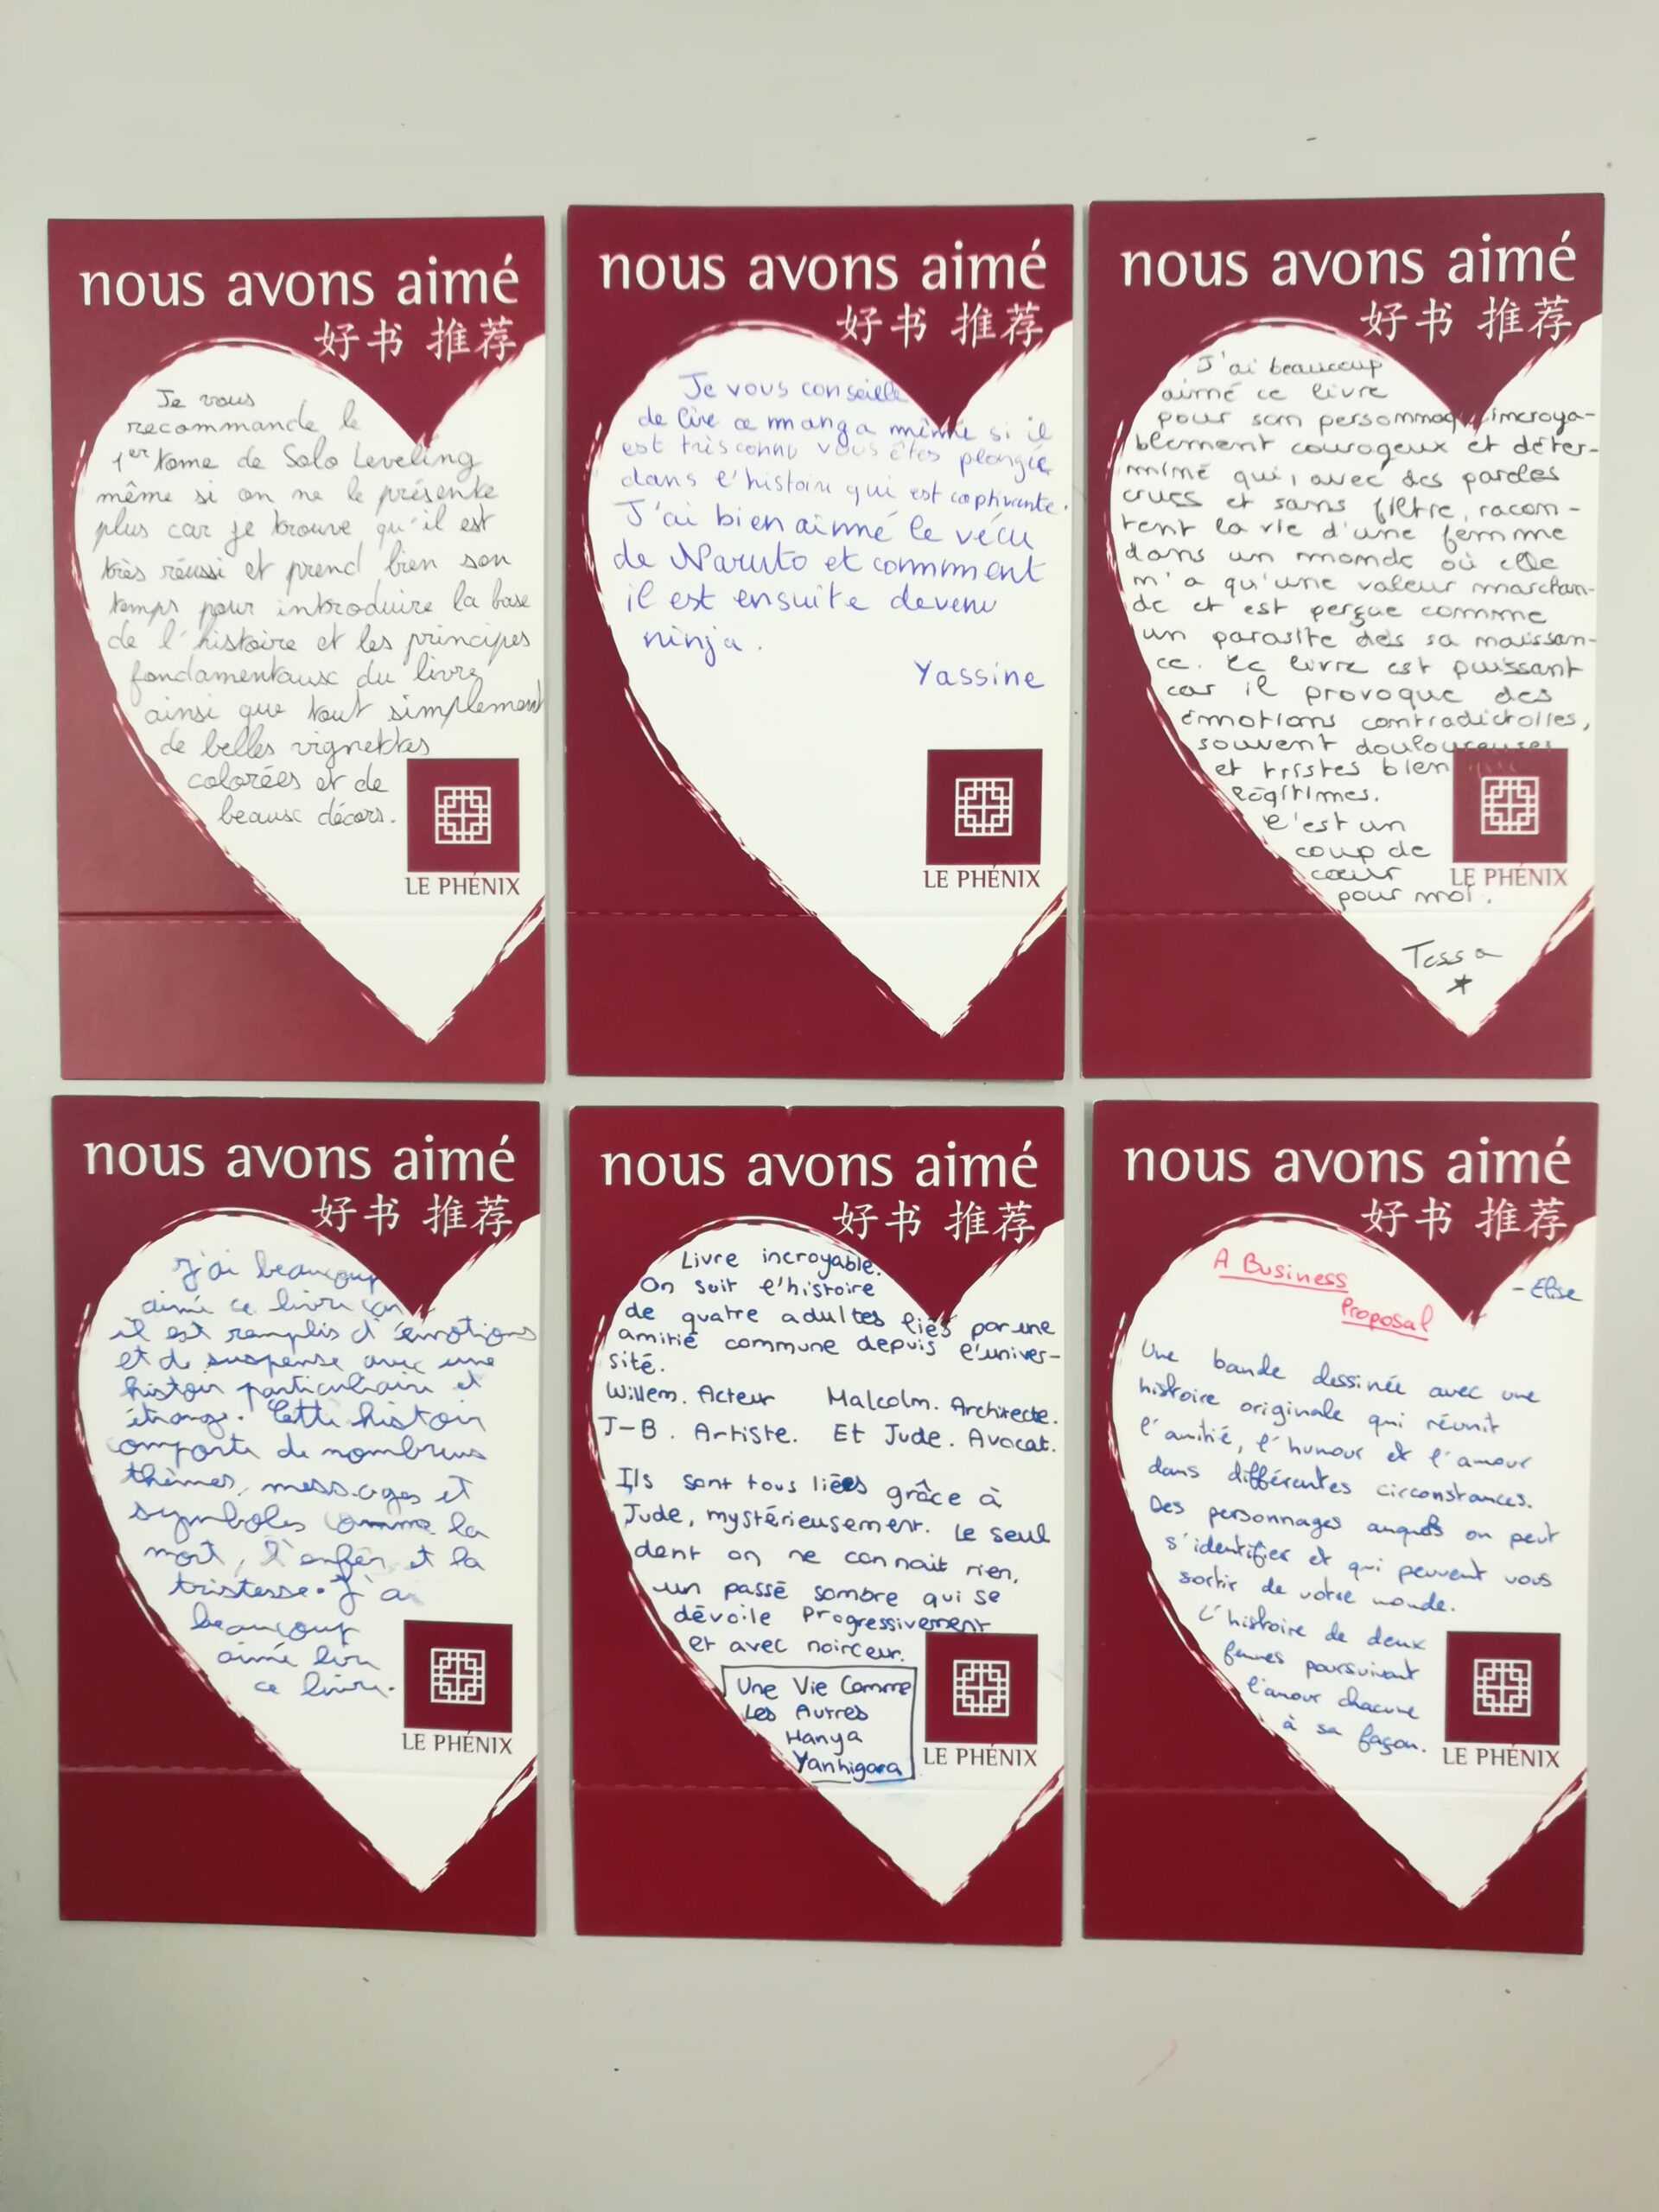 nous avons aimé
好书 推荐
Je vous
recommande le
1er tome de Solo Leveling
même si on ne le présente
plus car je trouve qu'il est
très réussi et prend bien son
temps pour introduire la base
de l'histoire et les principes
fondamentaux du livre
ainsi que tout simplement
de belles vignettes
colorées et de
beaux décors.
LE PHÉNIX
nous avons aimé
好书 推荐
Je vous conseille
de lire ce manga même si il
est très connu vous êtes plongée
dans l'histoire qui est captivante.
J'ai bien aimé le vécu
de Naruto et comment
il est ensuite devenu
ninja.
Yassine
LE PHÉNIX
nous avons aimé
好书 推荐
J'ai beaucoup
aimé ce livre
pour son personnage incroya-
blement courageux et déter-
miné qui, avec des paroles
crues et sans filtre, racon-
tent la vie d'une femme
dans un monde où elle
n'a qu'une valeur marchan-
de et est perçue comme
un parasite dès sa naissan-
ce. Ce livre est puissant
car il provoque des
émotions contradictoires,
souvent douloureuses
et tristes bien que
légitimes.
C'est un
coup de
cœur
pour moi.
Tessa
LE PHÉNIX
nous avons aimé
好书 推荐
J'ai beaucoup
aimé ce livre car
il est remplis d'émotions
et de suspense avec une
histoir particuliaire et
étrange. Cette histoir
comporte de nombreus
thèmes, messages et
symboles comme la
mort, l'enfer et la
tristesse. J'ai
beaucoup
aimé livr
ce livre.
LE PHÉNIX
nous avons aimé
好书 推荐
Livre incroyable.
On suit l'histoire
de quatre adultes liés par une
amitié commune depuis l'univer-
sité.
Willem. Acteur Malcolm. Architecte.
J-B. Artiste. Et Jude. Avocat.
Ils sont tous liées grâce à
Jude, mystérieusement. Le seul
dont on ne connait rien,
un passé sombre qui se
dévoile progressivement
et avec noirceur.
Une Vie Comme
Les Autres
Hanya
Yanhigara
LE PHÉNIX
nous avons aimé
好书 推荐
A Business
Proposal
- Elise
Une bande dessinée avec une
histoire originale qui réunit
l'amitié, l'humour et l'amour
dans différentes circonstances.
Des personnages auquels on peut
s'identifier et qui peuvent vous
sortir de votre monde.
L'histoire de deux
femmes poursuivant
l'amour chacune
à sa façon.
LE PHÉNIX